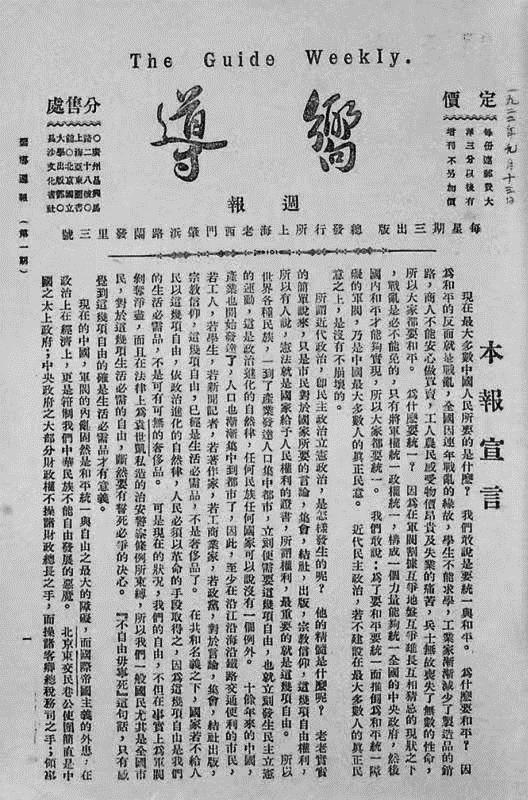 The Guide Weekly.
嚮導
週報
一九二二年九月十三日
定價
每份連郵費大
洋三分以後有
增刊不另加價
分售處
○廣州昌興馬
路二十八號○
上海亞東圖書
館○北京國立
大學出版部○
長沙文化書社
每星期三出版 總發行所上海老西門肇浜路蘭發里三號
本報宣言
現在最大多數中國人民所要的是什麼? 我們敢說是要統一與和平。 為什麼要和平? 因
為和平的反面就是戰亂,全國因連年戰亂的緣故,學生不能求學,工業家漸漸減少了製造品的銷
路,商人不能安心做買賣,工人農民感受物價昂貴及失業的痛苦,兵士無故喪失了無數的性命,
所以大家都要和平。 為什麼要統一? 因為在軍閥割據互爭地盤互爭雄長互相猜忌的現狀之下
,戰亂是必不能免的,只有將軍權統一政權統一,構成一個力量能夠統一全國的中央政府,然後
國內和平才能夠實現,所以大家都要統一。 我們敢說:為了要和平要統一而推倒為和平統一障
礙的軍閥,乃是中國最大多數人的真正民意。 近代民主政治,若不建設在最大多數人的真正民
意之上,是沒有不崩壞的。
所謂近代政治,即民主政治立憲政治,是怎樣發生的呢? 他的精髓是什麼呢? 老老實實
的簡單說來,只是市民對於國家所要的言論,集會,結社,出版,宗教信仰,這幾項自由權利,
所以有人說,憲法就是國家給予人民權利的證書,所謂權利,最重要的就是這幾項自由。 所以
世界各種民族,一到了產業發達人口集中都市,立刻便需要這幾項自由,也就立刻發生民主立憲
的運動,這是政治進化的自然律,任何民族任何國家可以說沒有一個例外。 十餘年來的中國,
產業也開始發達了,人口也漸漸集中到都市了,因此,至少在沿江沿海沿鐵路交通便利的市民,
若工人,若學生,若新聞記者,若著作家,若工商業家,若政黨,對於言論,集會,結社,出版,
宗教信仰,這幾項自由,已經是生活必需品,不是奢侈品了。 在共和名義之下,國家若不給人
民以這幾項自由,依政治進化的自然律,人民必須以革命的手段取得之,因為這幾項自由是我們
的生活必需品,不是可有可無的奢侈品。 可是現在的狀況,我們的自由,不但在事實上為軍閥
剝奪淨盡,而且在法律上為袁世凱私造的治安警察條例所束縛,所以我們一般國民尤其是全國市
民,對於這幾項生活必需的自由,斷然要有誓死必爭的決心。 『不自由毋寧死』這句話,只有感
覺到這幾項自由的確是生活必需品才有意義。
現在的中國,軍閥的內亂固然是和平統一與自由之最大的障礙,而國際帝國主義的外患,在
政治上在經濟上,更是箝制我們中華民族不能自由發展的惡魔。 北京東交民巷公使團簡直是中
國之太上政府;中央政府之大部分財政權不操諸財政總長之手,而操諸客卿總稅務司之手;領事
嚮導週報 (第一期)
一